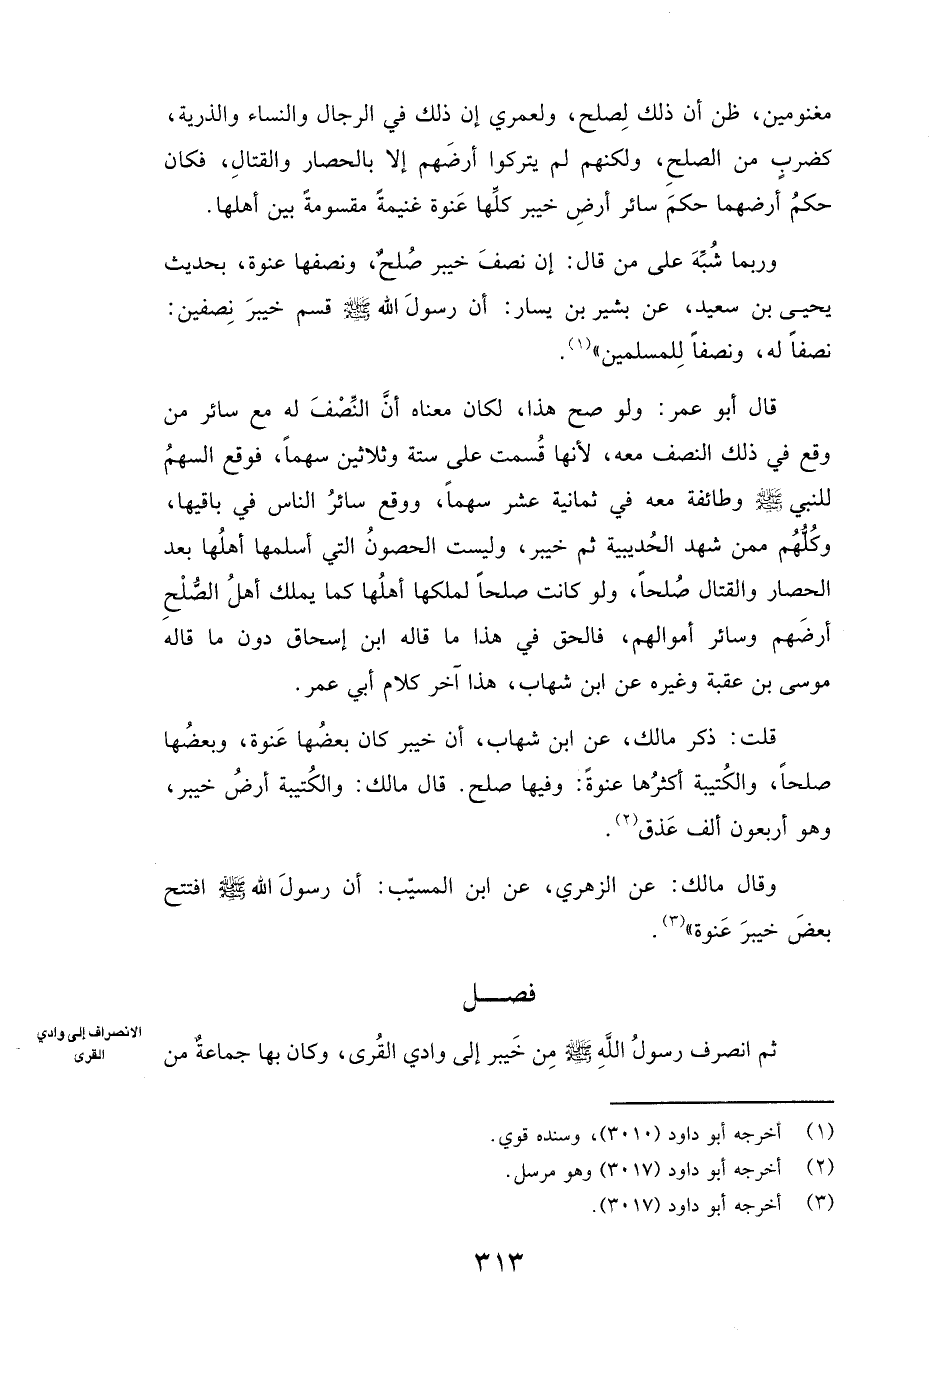 مغنومين، ظن أن ذلك لِصلح، ولعمري إن ذلك في الرجال والنساء والذرية،
كضربٍ من الصلحِ، ولكنهم لم يتركوا أرضَهم إلا بالحصار والقتالِ، فكان
حكمُ أرضهما حكمَ سائر أرضِ خيبر كلِّها عَنوة غنيمةً مقسومةً بين أهلها.
وربما شُبِّهَ على من قال: إن نصفَ خيبر صُلحٌ، ونصفها عنوة، بحديث
يحيى بن سعيد، عن بشير بن يسار: أن رسولَ الله ﷺ قسم خيبرَ نِصفين:
نصفاً له، ونصفاً لِلمسلمين»(١).
قال أبو عمر: ولو صح هذا، لكان معناه أنَّ النِّصْفَ له مع سائر من
وقع في ذلك النصف معه، لأنها قُسمت على ستة وثلاثين سهماً، فوقع السهمُ
للنبي ﷺ وطائفة معه في ثمانية عشر سهماً، ووقع سائرُ الناس في باقيها،
وكُلُّهُم ممن شهد الحُديبية ثم خيبر، وليست الحصونُ التي أسلمها أهلُها بعد
الحصار والقتال صُلحاً، ولو كانت صلحاً لملكها أهلُها كما يملك أهلُ الصُّلْحِ
أرضَهم وسائر أموالهم، فالحق في هذا ما قاله ابن إسحاق دون ما قاله
موسى بن عقبة وغيره عن ابن شهاب، هذا آخر كلام أبي عمر.
قلت: ذكر مالك، عن ابن شهاب، أن خيبر كان بعضُها عَنوة، وبعضُها
صلحاً، والكُتيبة أكثرُها عنوةً: وفيها صلح. قال مالك: والكُتيبة أرضُ خيبر،
وهو أربعون ألف عَذق(٢).
وقال مالك: عن الزهري، عن ابن المسيّب: أن رسولَ الله ﷺ افتتح
بعضَ خيبرَ عَنوة»(٣).
فصـــل
الانصراف إلى وادي
القرى
ثم انصرف رسولُ اللَّهِ ﷺ مِن خَيبر إلى وادي القُرى، وكان بها جماعةٌ من
(١) أخرجه أبو داود (٣٠١٠)، وسنده قوي.
(٢) أخرجه أبو داود (٣٠١٧) وهو مرسل.
(٣) أخرجه أبو داود (٣٠١٧).
٣١٣